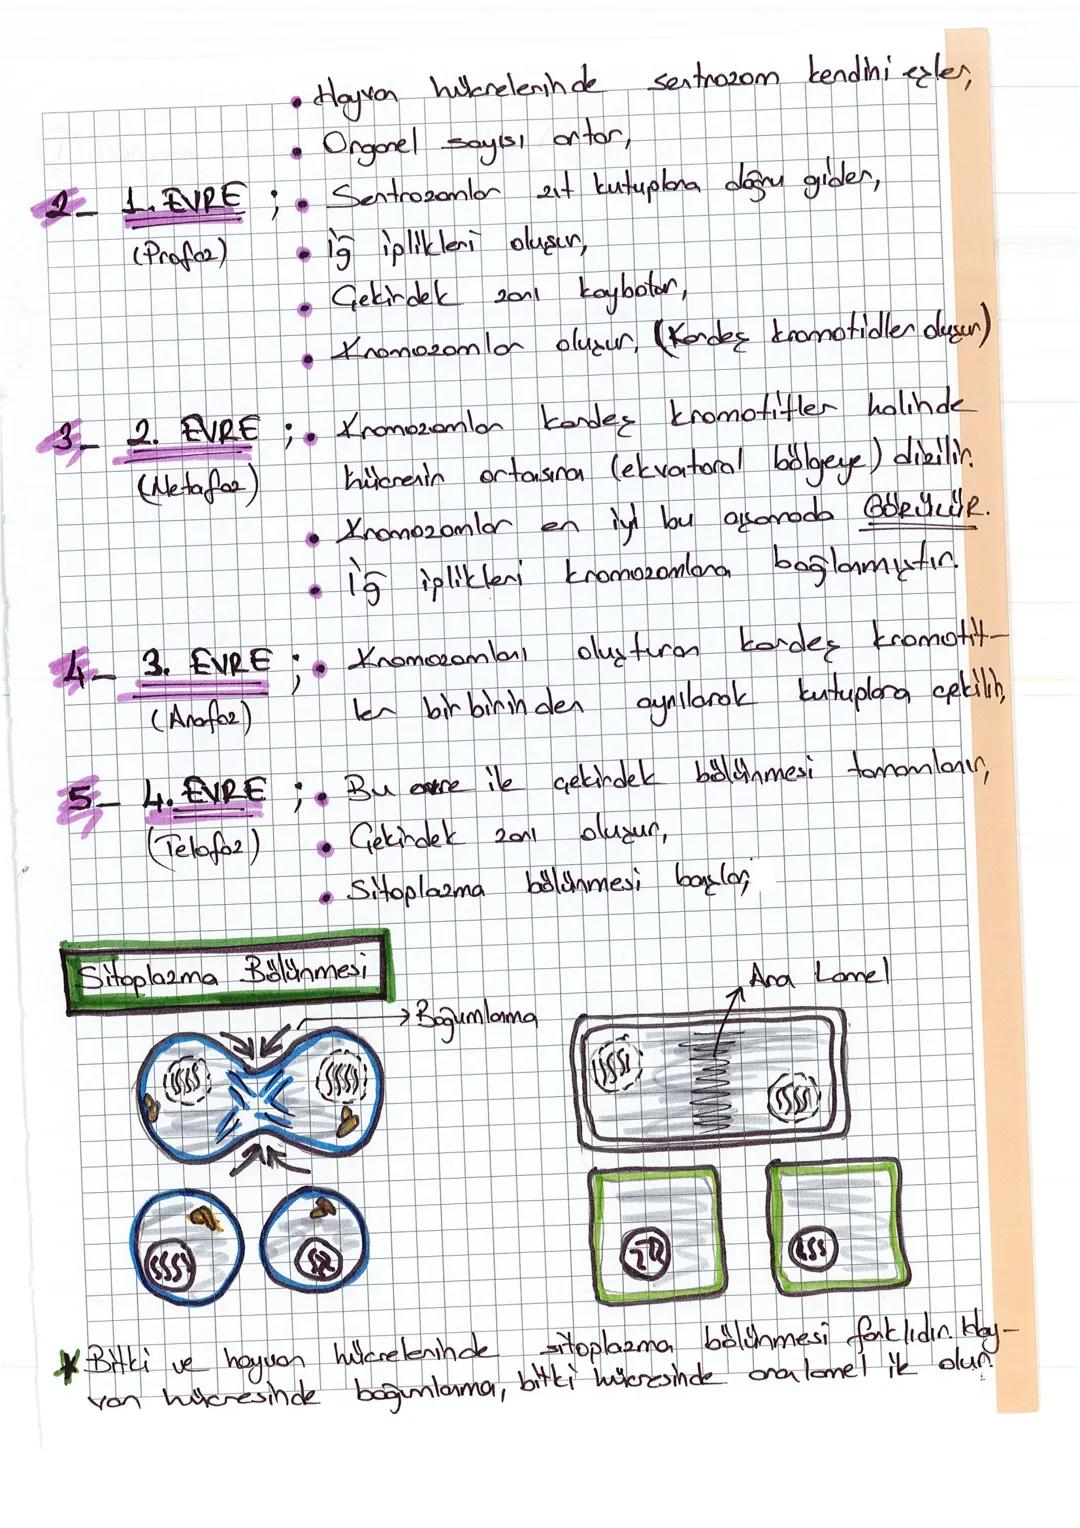 • Hayvan hücrelerinde sentrozom kendini eşler,
• Organel sayısı artar,
2- 1. EVRE ; • Sentrozomlar zıt kutuplara doğru gider,
(Profaz) • İğ iplikleri oluşur,
• Çekirdek zarı kaybolur,
• Kromozomlar oluşur, (Kardeş kromatidler oluşur)
3- 2. EVRE ; • Kromozomlar kardeş kromatitler halinde
(Metafaz) hücrenin ortasına (ekvatoral bölgeye) dizilir.
• Kromozomlar en iyi bu aşamada GÖRÜLÜR.
• İğ iplikleri kromozomlara bağlanmıştır.
4- 3. EVRE ; • Kromozomları oluşturan kardeş kromatit-
(Anafaz) ler birbirinden ayrılarak kutuplara çekilir,
5- 4. EVRE ; • Bu evre ile çekirdek bölünmesi tamamlanır,
(Telofaz) • Çekirdek zarı oluşur,
• Sitoplazma bölünmesi başlar,
Sitoplazma Bölünmesi
Ara Lamel
Boğumlanma
* Bitki ve hayvan hücrelerinde sitoplazma bölünmesi farklıdır. Hay-
van hücresinde boğumlanma, bitki hücresinde ara lamel ile olur.